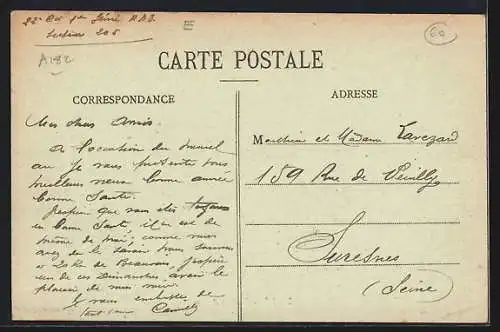 22e Bat 1er Génie
Section 205
E
60
A182
CARTE POSTALE
CORRESPONDANCE
ADRESSE
Mes chers Amis.
A l'occation du nouvel
an je vous présente mes
meilleurs vœux bonne année
bonne Santé.
J'espère que vous êtes toujours
en bonne Santé, il en est de
même de moi, comme vous
avez de le savoir nous sommes
a de Beauvais, j'espère
un de ces Dimanches avoir le
plaisir de vous voir.
Je vous embrasse de
tout cœur Camille
Monsieur et Madame Tarezard
159 Rue de Neuilly
Suresnes
(Seine)